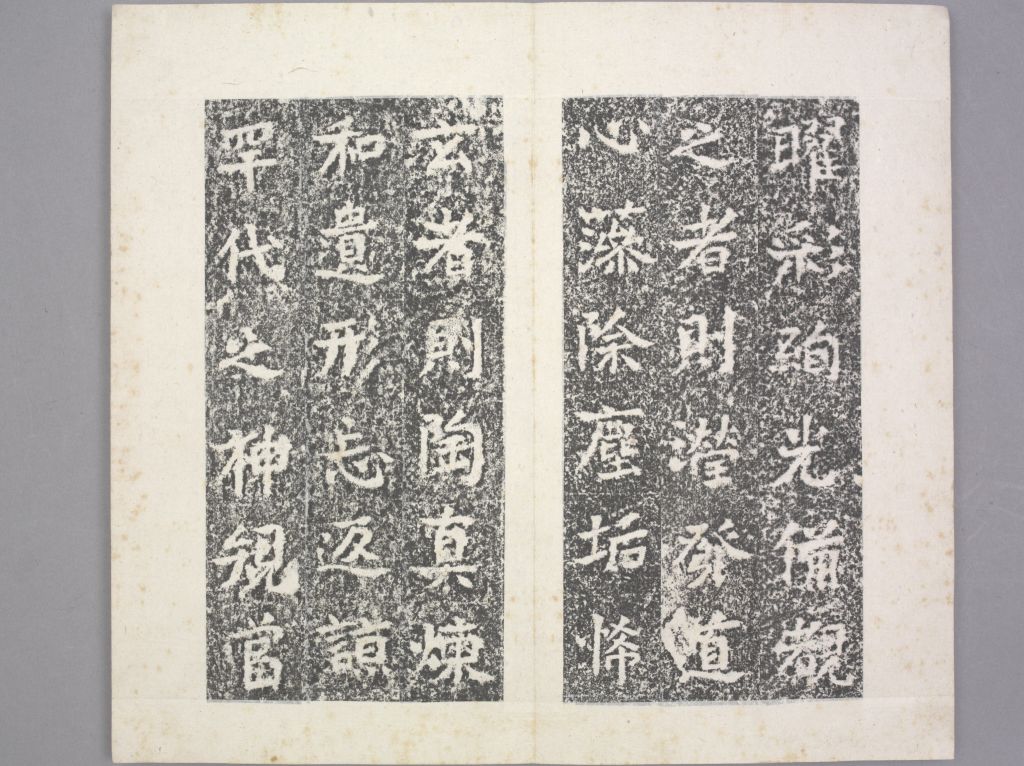 曜彩光備覩
之者則瀅發道
心藻除塵垢悕
玄者則陶真煉
和遺形忘返諒
罕代之神規當